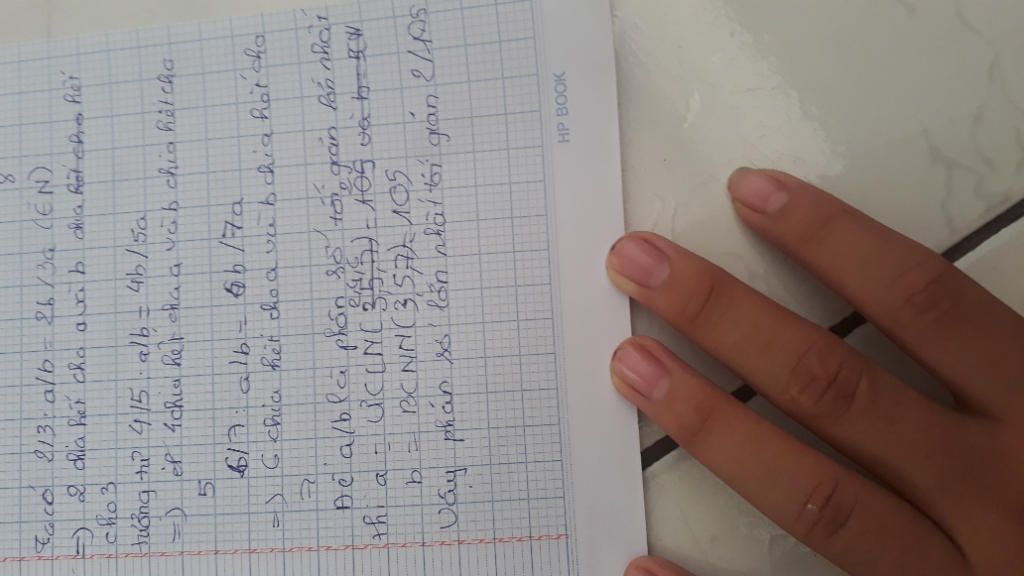 8
Ta có 2/3 : a/b = 2b/3a (∈ N)
=) 2 chia hết cho a và b chia hết cho hết
cho 3
tương tự 4/5 : a/b = 4b/5a
=) 4 chia hết cho a và b chia hết cho
5
6/7 : a/b = 6b/7a
=) 6 chia hết cho a và b chia hết cho
7
Để a/b là phân số tối giản lớn nhất
thì a = ƯCLN ( 2,4,6 ) = 105 và b = BCN
b = BCNN (3,5,7) = 105
Vậy phân số lớn nhất tối giản 2/105
HP BOOK